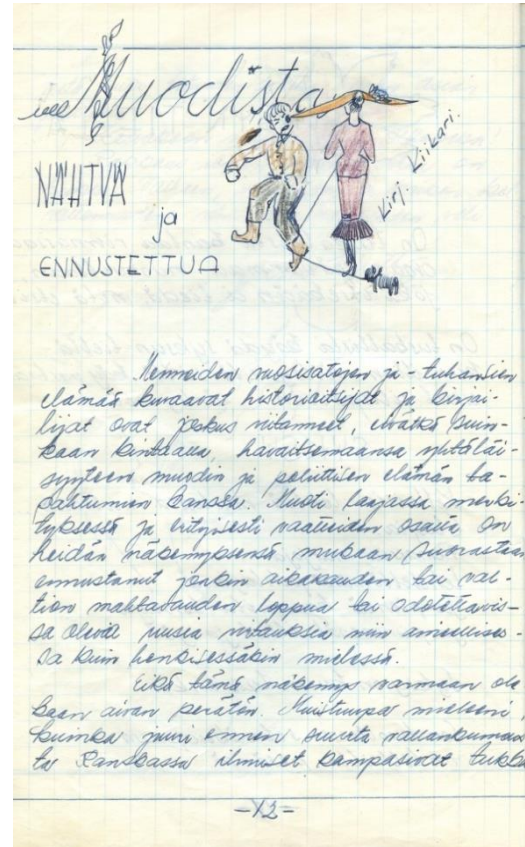 Muodista
NÄHTYÄ
ja
ENNUSTETTUA
Kirj. Kiikari.
Menneiden vuosisatojen ja -tuhansien
elämää kuvaavat historioitsijat ja kirjai-
lijat ovat joskus viitanneet, eivätkä suin-
kaan kintaalla, havaitsemaansa yhtäläi-
syyteen muodin ja poliittisen elämän ta-
pahtumien kanssa. Muoti laajassa merki-
tyksessä ja erityisesti vaatteiden osalta on
heidän näkemyksensä mukaan suorastaan
ennustanut jonkin aikakauden tai val-
tion mahtavuuden loppua tai odotettavis-
sa olevia uusia virtauksia niin aineellises-
sa kuin henkisessäkin mielessä.
Eikä tämä näkemys varmaan ole
kaan aivan perätön. Muistuupa mieleeni,
kuinka juuri ennen suurta vallankumous
ta Ranskassa ihmiset kampasivat tukka
-12-